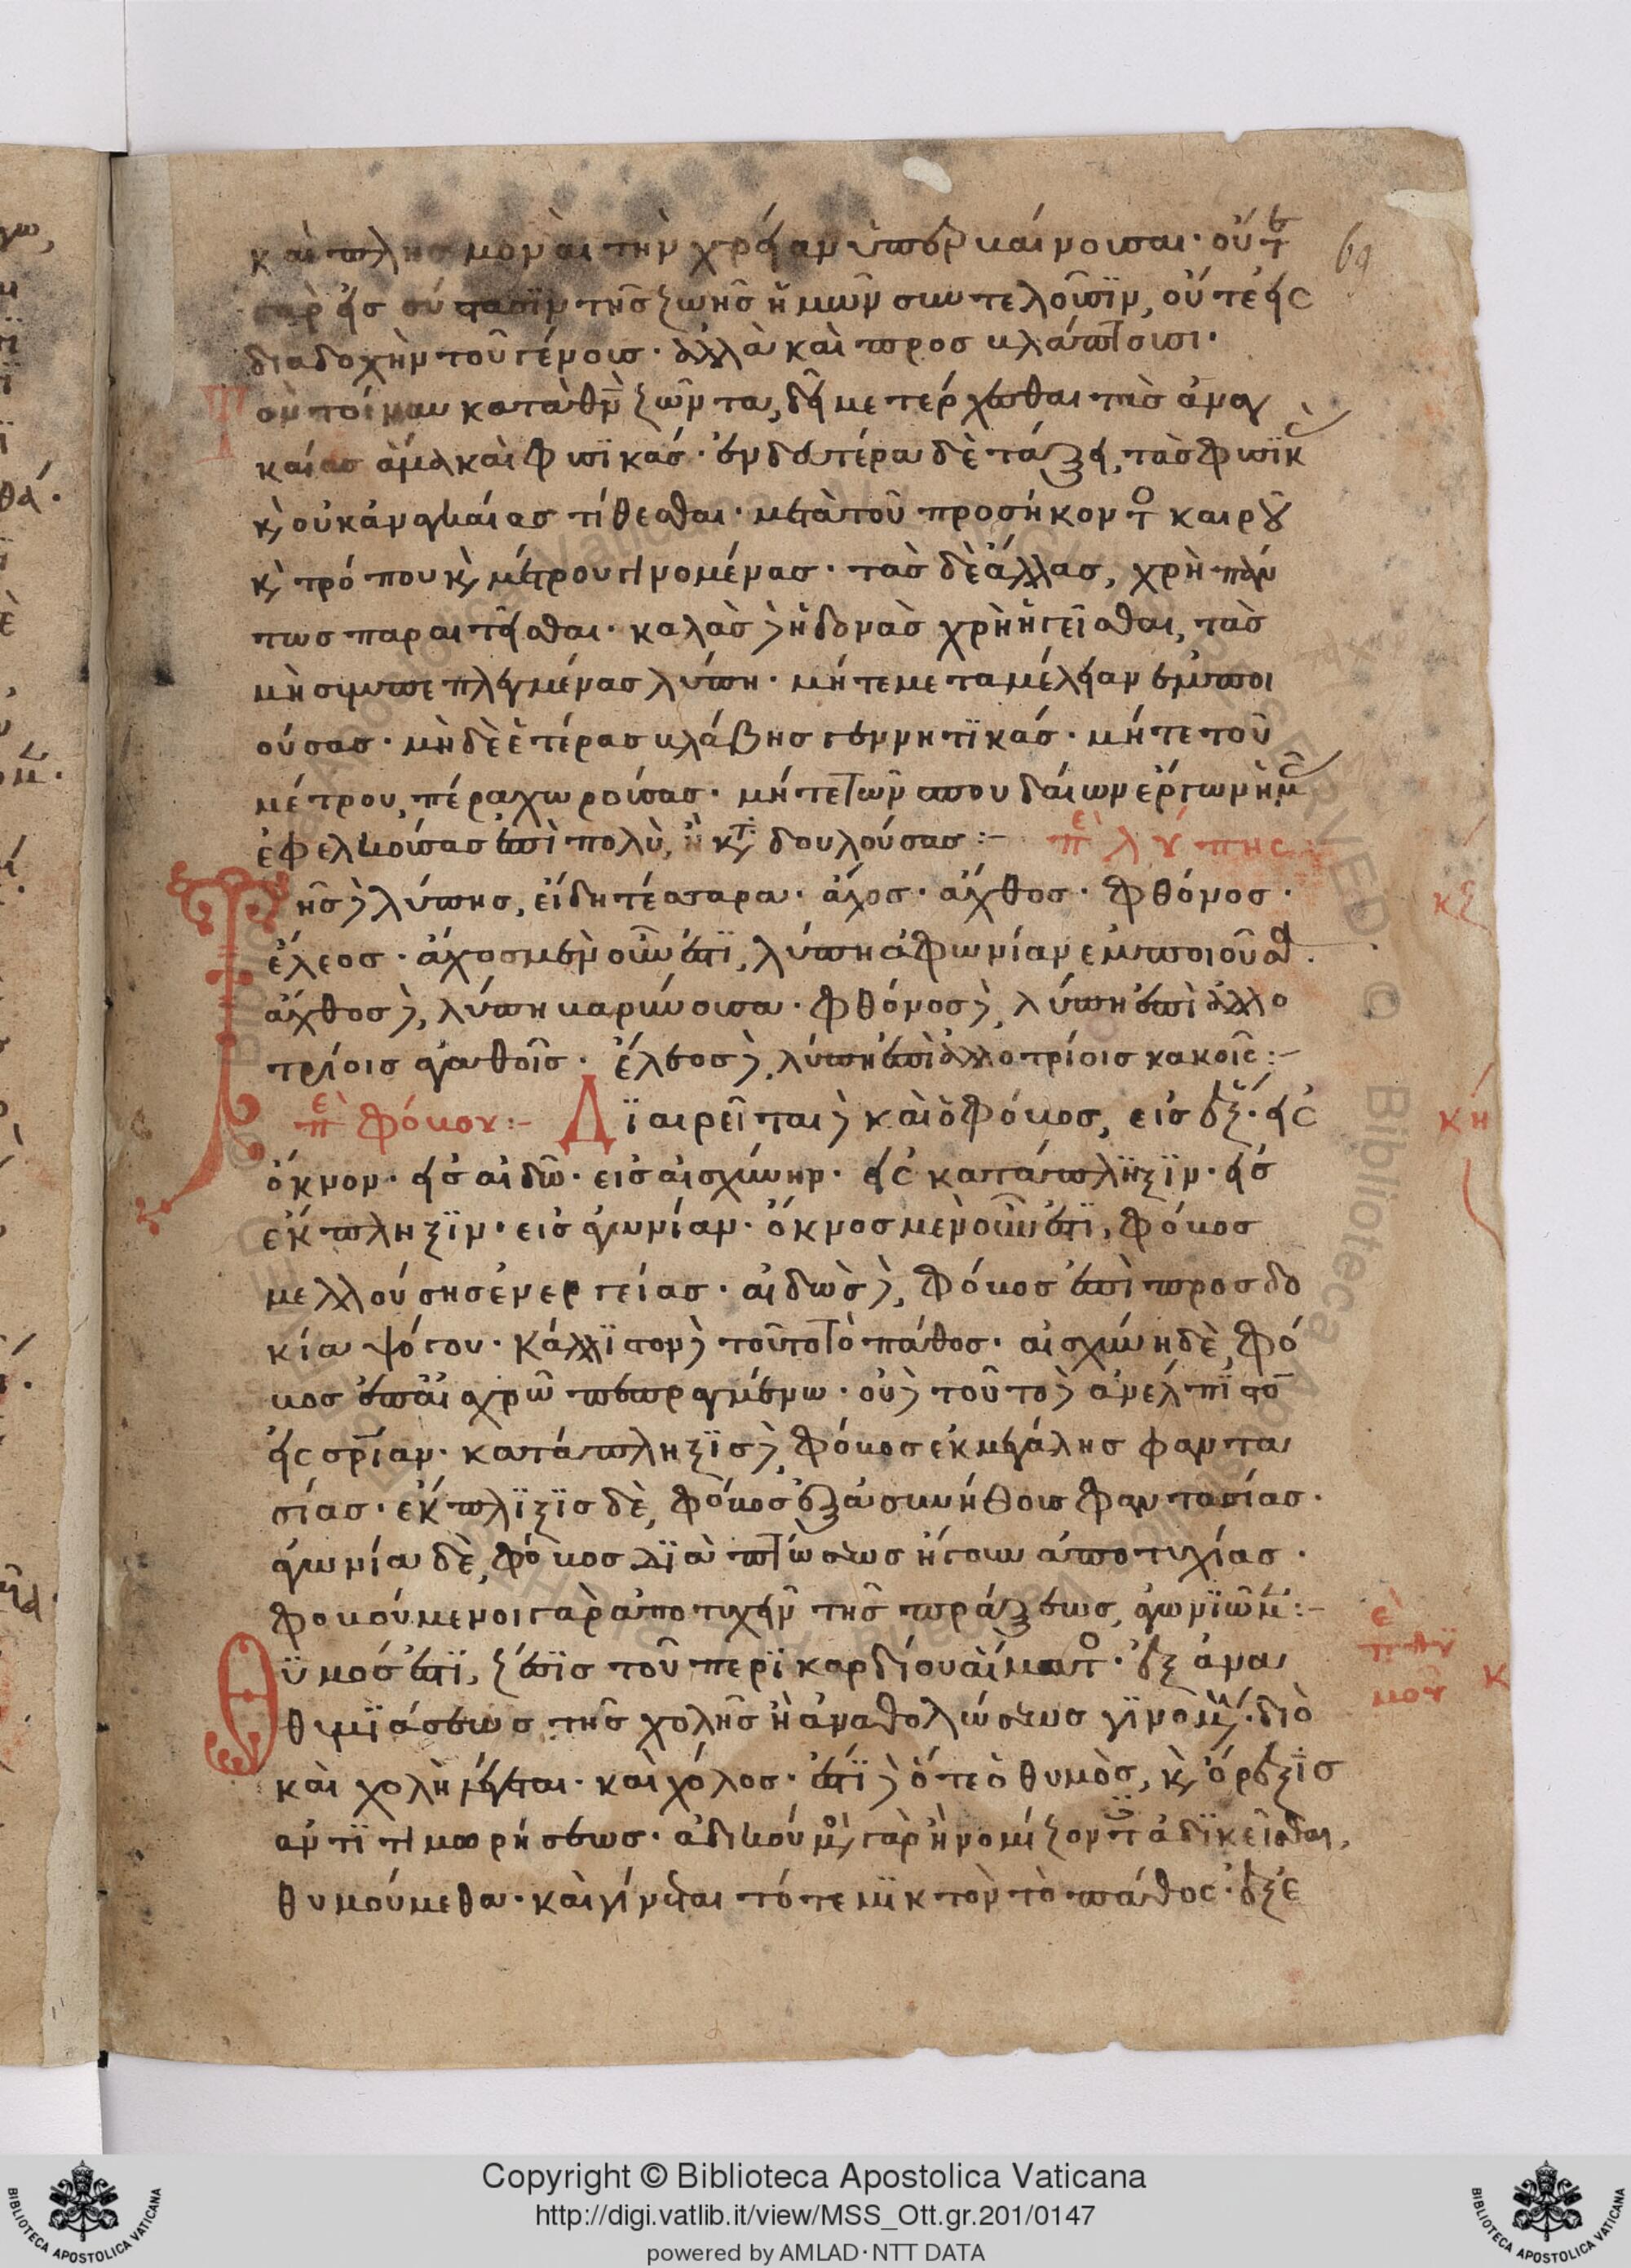 καὶ πλησμοναὶ τὴν χρείαν ὑπερβαίνουσαι· οὔτε
γὰρ εἰς σύστασιν τῆς ζωῆς ἡμῶν συντελοῦσϊν, οὔτε εἰς
διαδοχὴν τοῦ γένους· ἀλλὰ καὶ προσβλάπτουσι·
Τὸν τοίνυν κατὰ θν ζῶντα, δεῖ μετέρχεσθαι τὰς ἀναγ
καίας ἅμα καὶ φυσϊκάς· ἐν δευτέρα δὲ τάξει, τὰς φυσϊκ
κ οὐκ ἀναγκαίας τίθεσθαι· μετὰ τοῦ προσήκοντο καιροῦ
κ τρόπου κ μέτρου γινομένας· τὰς δὲ ἄλλας, χρὴ πάν
τως παραιτεῖσθαι· καλὰς δὲ ἡδονὰς χρὴ ἡγεῖσθαι, τὰς
μὴ συμπεπλεγμένας λύπη· μήτε μεταμέλειαν ἐμποι
ούσας· μὴ δὲ ἑτέρας βλάβης γεννητϊκάς· μήτε τοῦ
μέτρου πέρα χωρούσας· μήτε τῶν σπουδαίων ἔργων ἡμ
ἐφελκούσας ἐπὶ πολὺ, ἢ κατ δουλούσας:– πε λύπης
Τῆς δὲ λύπης, εἴδη τέσσαρα· ἄχος· ἄχθος· φθόνος· κζ
ἔλεος· ἄχος μὲν οὖν ἐστϊ, λύπη ἀφωνίαν ἐμποιοῦσα·
ἄχθος δὲ, λύπη βαρύνουσα· φθόνος δὲ, λύπη ἐπὶ ἀλλο
τρίοις ἀγαθοῖς· ἔλεος δὲ, λύπη ἐπὶ ἀλλοτρίοις κακοῖς:–
πε φόβου:– Δϊαιρεῖται δὲ καὶ ὁ φόβος, εἰς ἕξ· εἰς κη
ὄκνον· εἰς αἰδῶ· εἰς αἰσχύνην· εἰς κατάπληξϊν· εἰς
ἔκπληξϊν· εἰς ἀγωνίαν· ὄκνος μὲν οὖν ἐστϊ, φόβος
μελλούσης ἐνεργείας· αἰδὼς δὲ, φόβος ἐπὶ προσδο
κία ψόγου· κάλλϊστον δὲ τοῦτο τὸ πάθος· αἰσχύνη δὲ, φό
βος ἐπ' αἰσχρῶ πεπραγμένω· οὐ δὲ τοῦτο δὲ ἀνέλπϊστο
εἰς σρίαν· κατάπληξϊς δὲ, φόβος ἐκ μεγάλης φαντα
σίας· ἔκπλϊξϊς δὲ, φόβος ἐξ ἀσυνήθους φαντασίας·
ἀγωνία δὲ, φόβος δϊὰ πτώσεως ἤγουν ἀποτυχίας·
φοβούμενοι γὰρ ἀποτυχεῖν τῆς πράξεως, ἀγωνϊῶμ:–
Θϋμός ἐστϊ, ζέσϊς τοῦ περϊκαρδίου αἵματο· ἐξ ἀνα πε θϋ
θυμϊάσεως τῆς χολῆς ἢ ἀναθολώσεως γϊνομ· διὸ μοῦ κ
καὶ χολὴ λέγεται· καὶ χόλος· ἐστϊ δὲ ὅτε ὁ θυμὸς, κ ὄρεξϊς
ἀντϊτιμωρήσεως· ἀδικούμ γὰρ ἢ νομίζοντ ἀδϊκεῖσθαι,
θυμούμεθα· καὶ γίνεται τότε μϊκτὸν τὸ πάθος· ἐξ ἐ
Copyright © Biblioteca Apostolica Vaticana
http://digi.vatlib.it/view/MSS_Ott.gr.201/0147
powered by AMLAD·NTT DATA
BIBLIOTECA APOSTOLICA VATICANA
BIBLIOTECA APOSTOLICA VATICANA